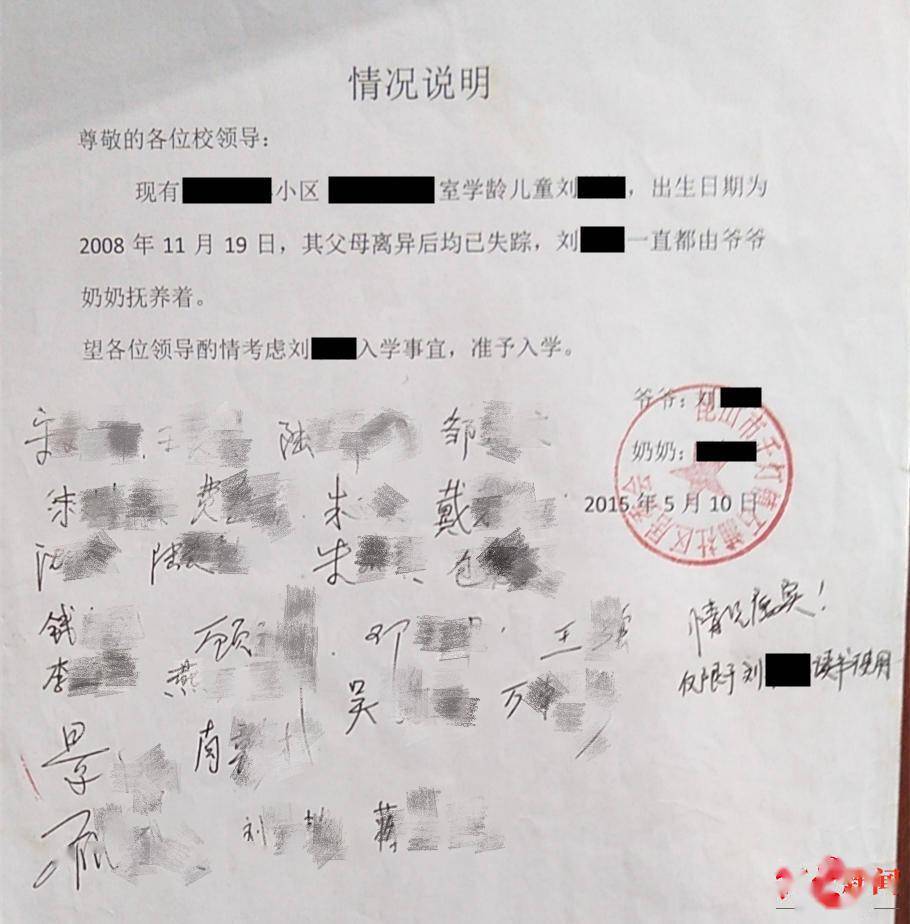 情况说明
尊敬的各位校领导：
现有 小区 室学龄儿童刘 ，出生日期为
2008 年 11 月 19 日，其父母离异后均已失踪，刘 一直都由爷爷
奶奶抚养着。
望各位领导酌情考虑刘 入学事宜，准予入学。
爷爷：刘
奶奶：
2015 年 5 月 10 日
昆山市千灯镇石浦社区居 会
陆 邹
朱 戴
沈 陆 朱 包
钱 顾 邓 王
李 燕 吴 万
景 南
刘 蒋
情况属实！
仅限于刘 读书使用
闻